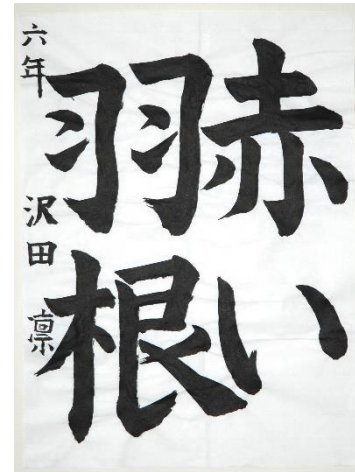 赤い
羽根
六年 沢田 凛